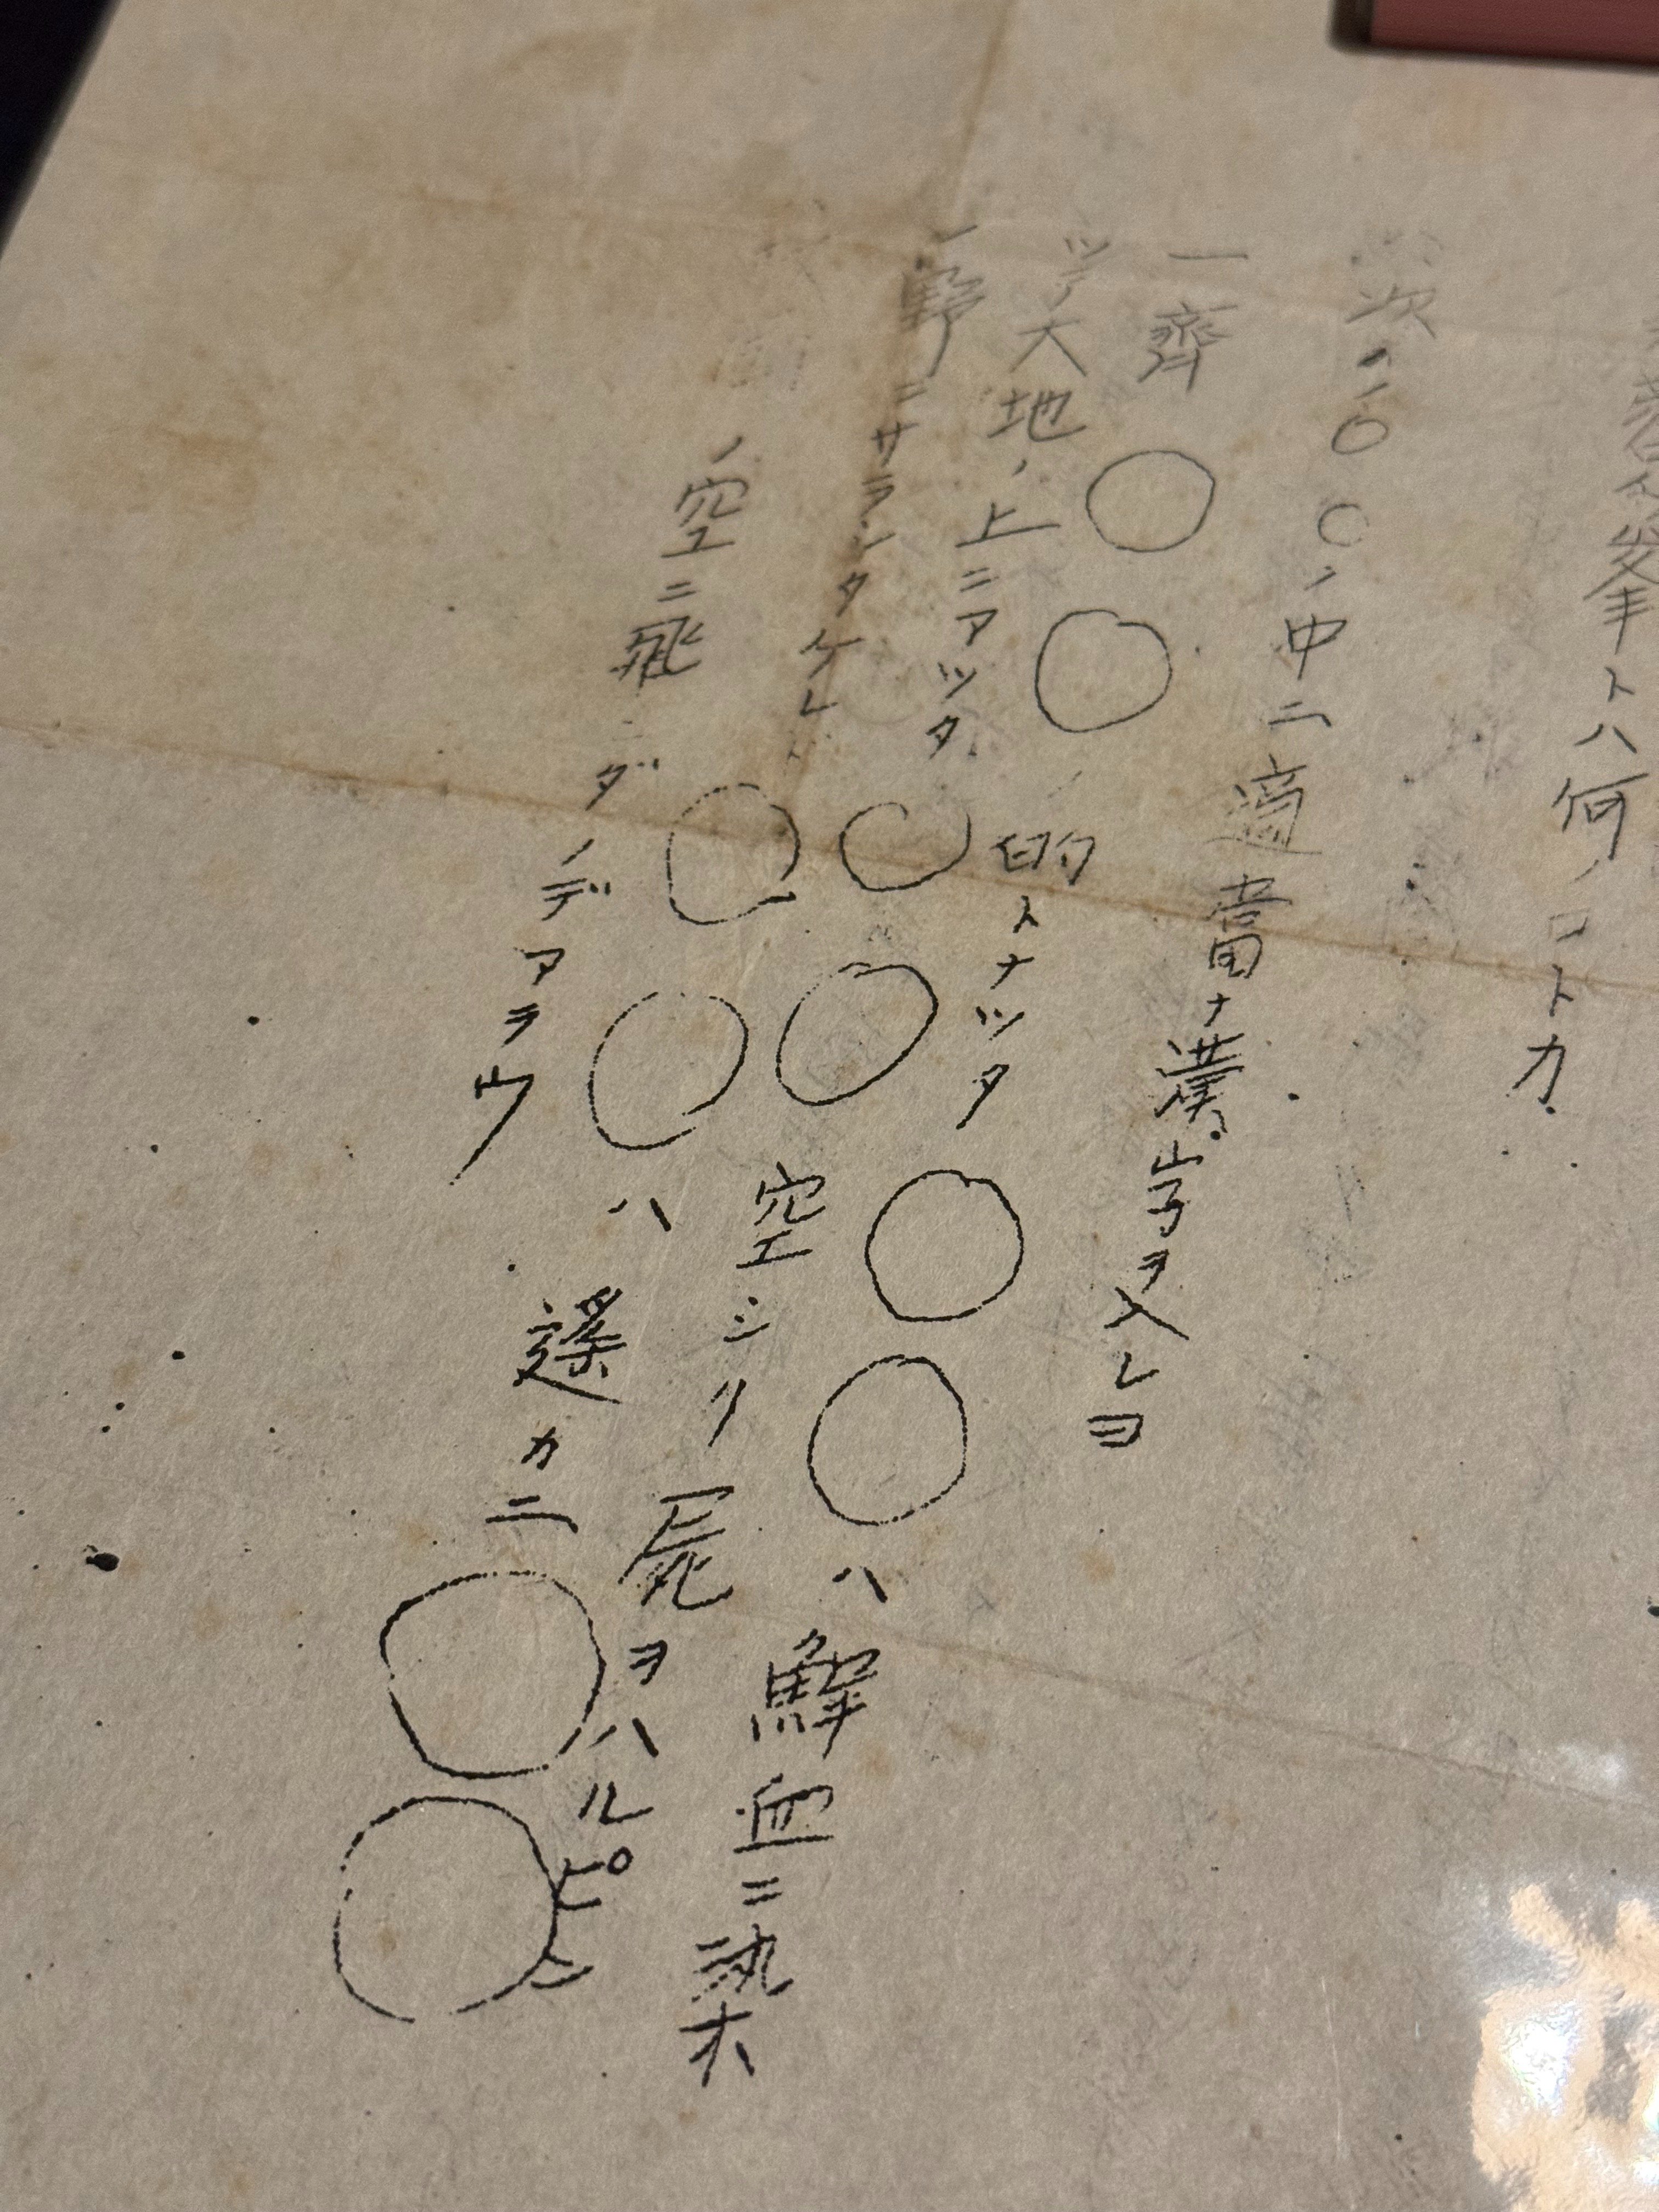 發車トハ何ノコトカ.
次ノ○○ノ中ニ適當ナ漢字ヲ入レヨ
一齊○○ノ的トナツタ○○ハ鮮血ニ染
ツテ大地ノ上ニアツタ.○○空シク屍ヲハルピン
ノ野ニサラシタケレド○○ハ遙カニ○○
ノ空ニ飛ンダノデアラウ